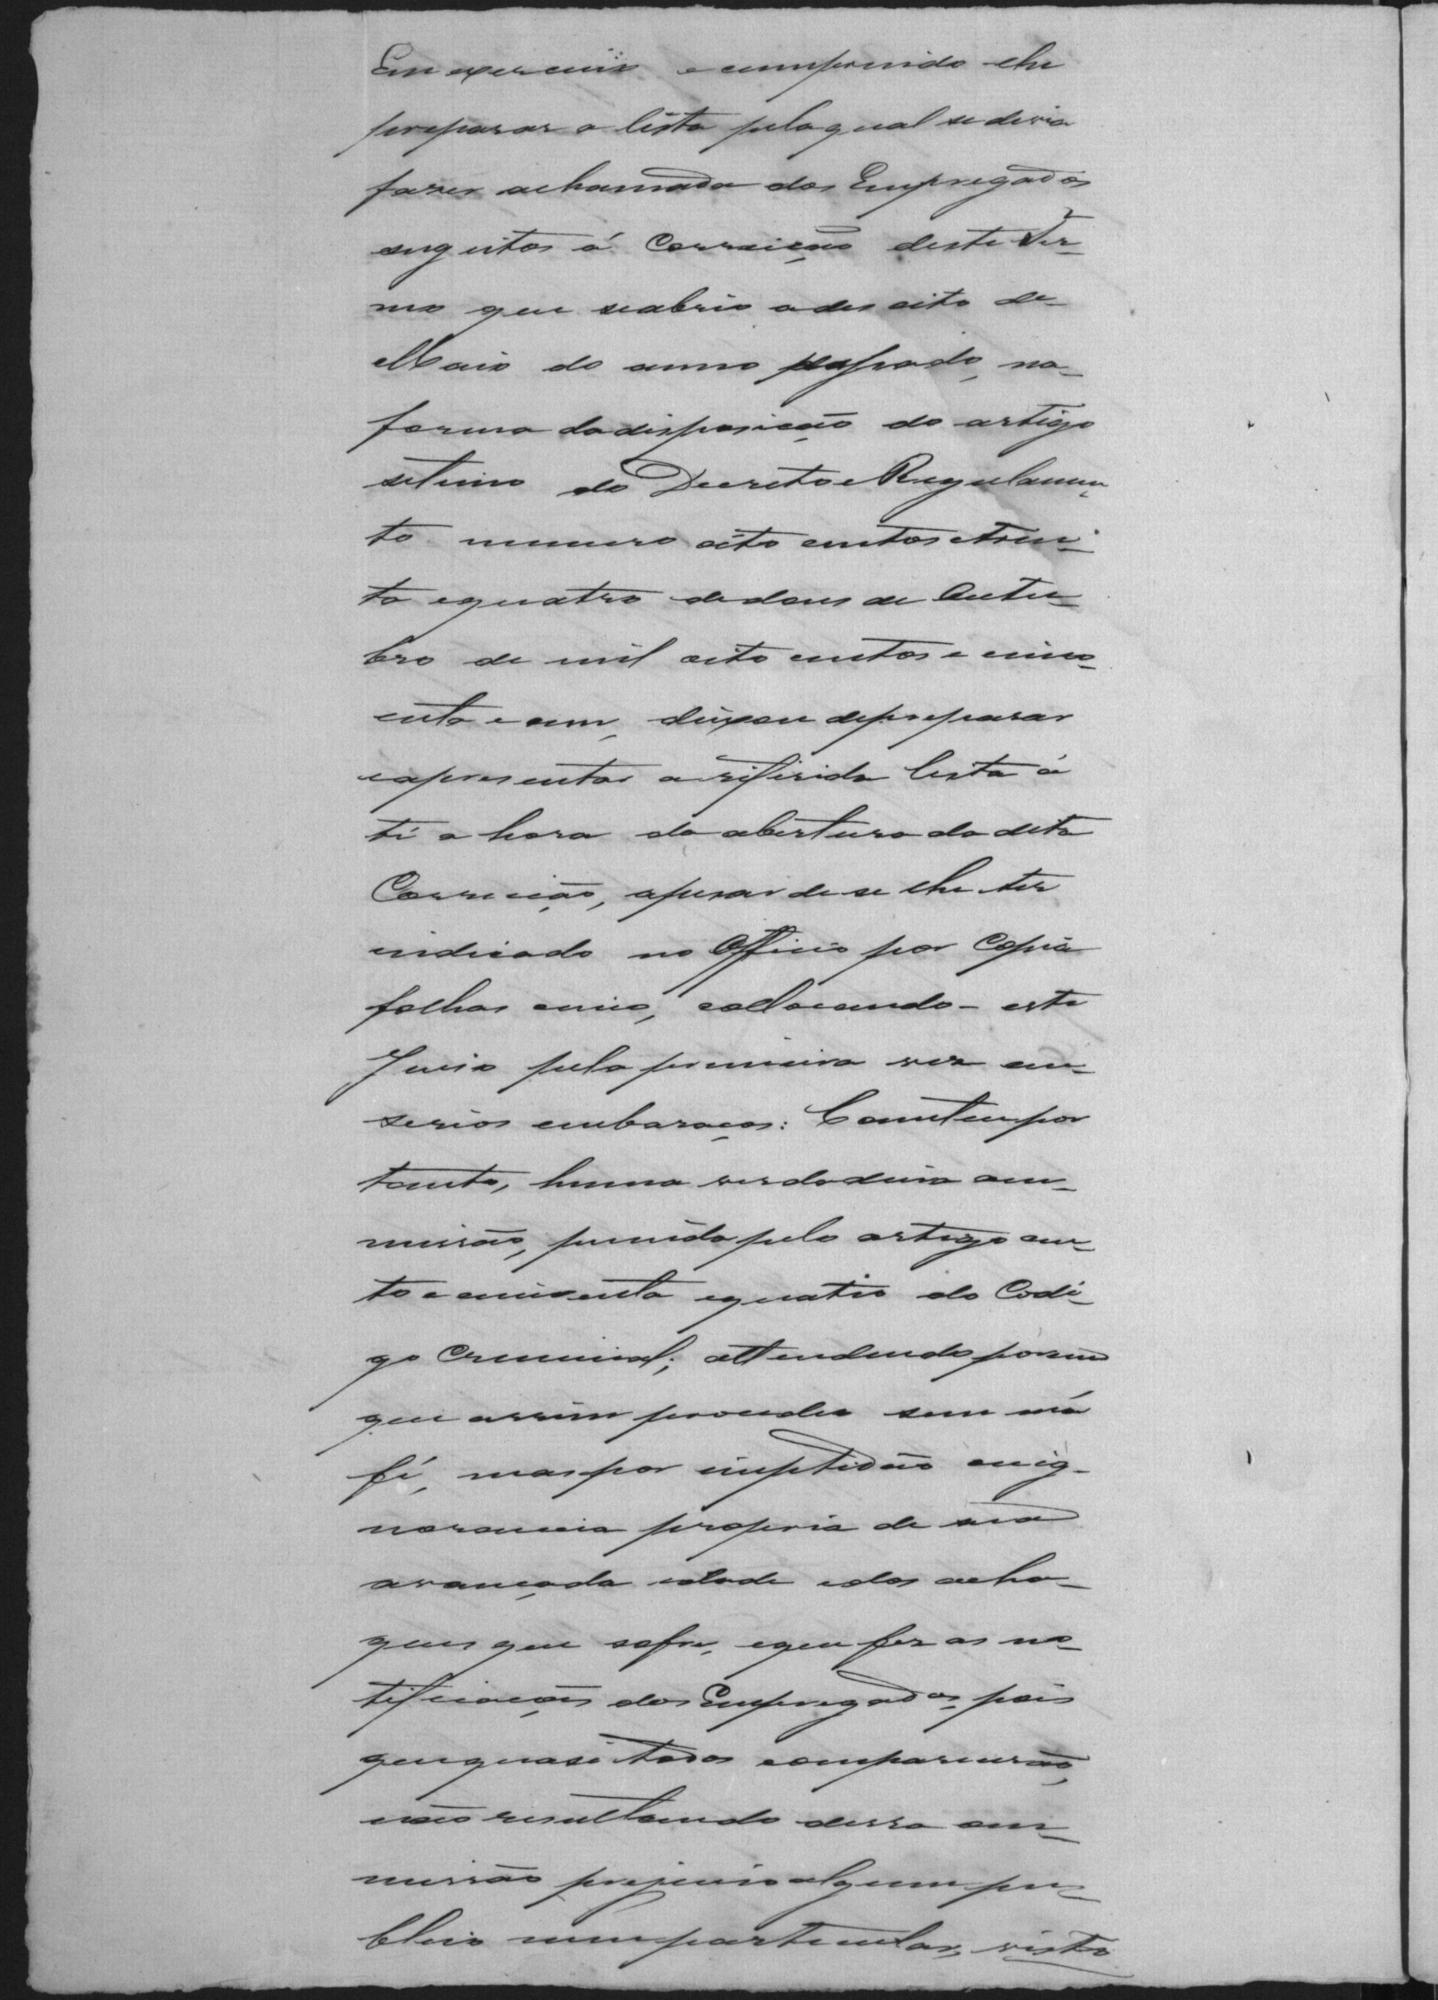 Em exercicio e cumprindo-lhe
preparar a lista pela qual se devia
fazer a chamada dos Empregados
sugeitos á Correição deste Ter-
mo que se abrio a des oito de
Maio do anno passado, na
forma da disposição do artigo
setimo do Decreto e Regulamen-
to numero oito centos e trin-
ta e quatro de dous de Outu-
bro de mil oito centos e cinco-
enta e um, deixou de preparar
e apresentar a referida lista á
té a hora da abertura da dita
Correição, apesar de se lhe ter
indicado no Officio por Copia
folhas cinco, collocando-este
Juizo pela primeira vez em
serios embaraços: Cometeu por
tanto, huma verdadeira om-
missão, punida pelo artigo cen-
to e cincoenta e quatro do Codi-
go Criminal; attendendo porem
que assim procedeu sem má
fé, mas por ineptidão ou ig-
norancia propria de sua
avançada idade e dos acha-
ques que sofre, e que fez as no-
tificações dos Empregados, pois
que quasi todos comparecerão,
não resultando dessa om-
missão prejuizo algum pu-
blico nem particular, visto